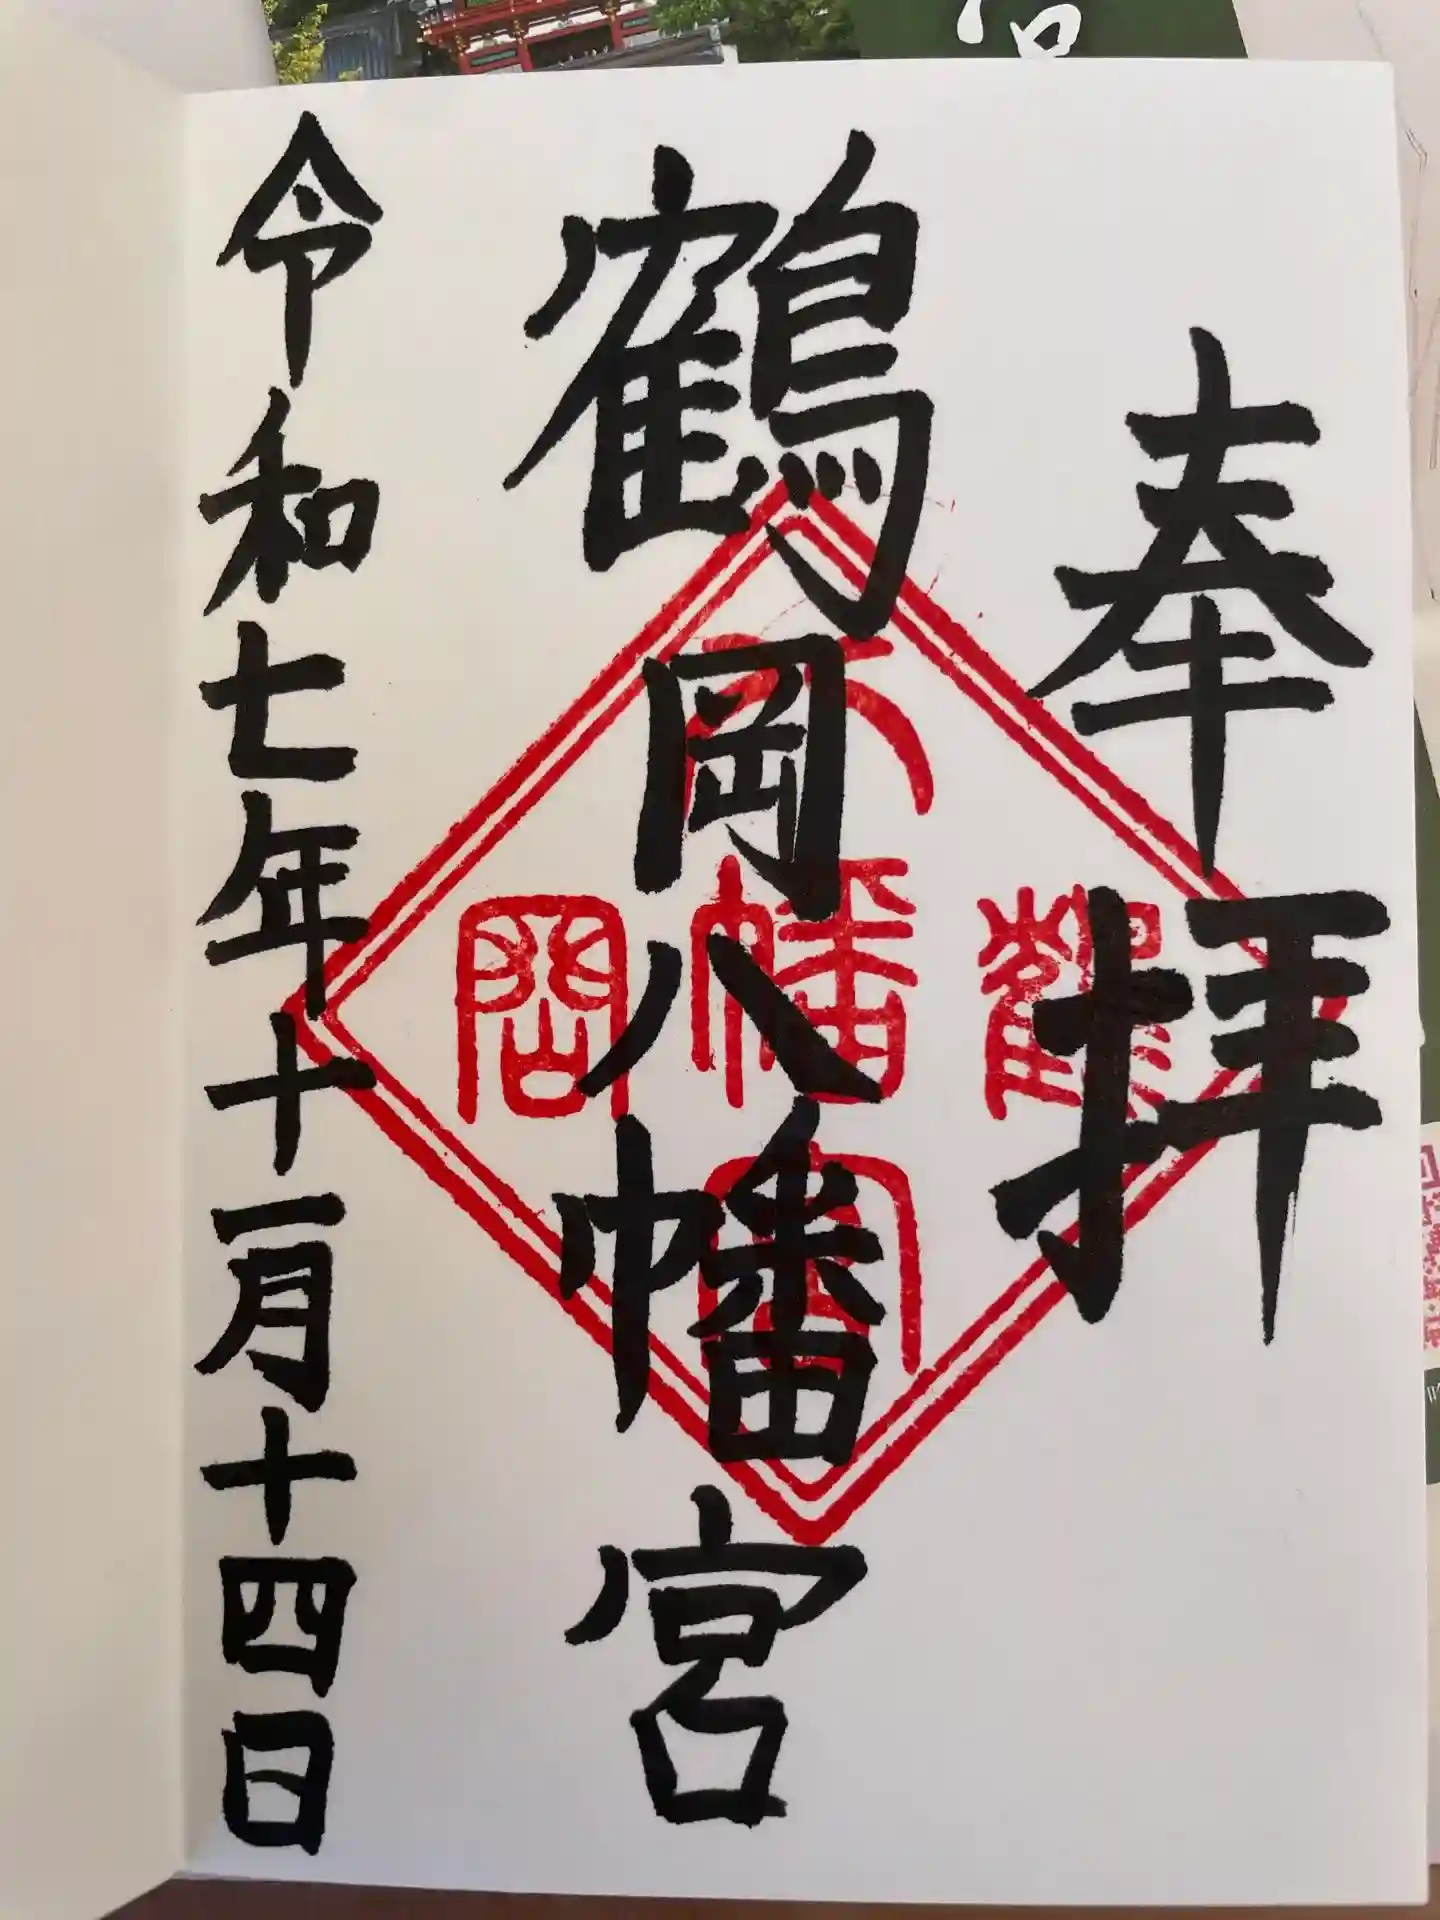 奉拝
鶴岡八幡宮
令和七年十一月十四日
鶴岡
八幡宮